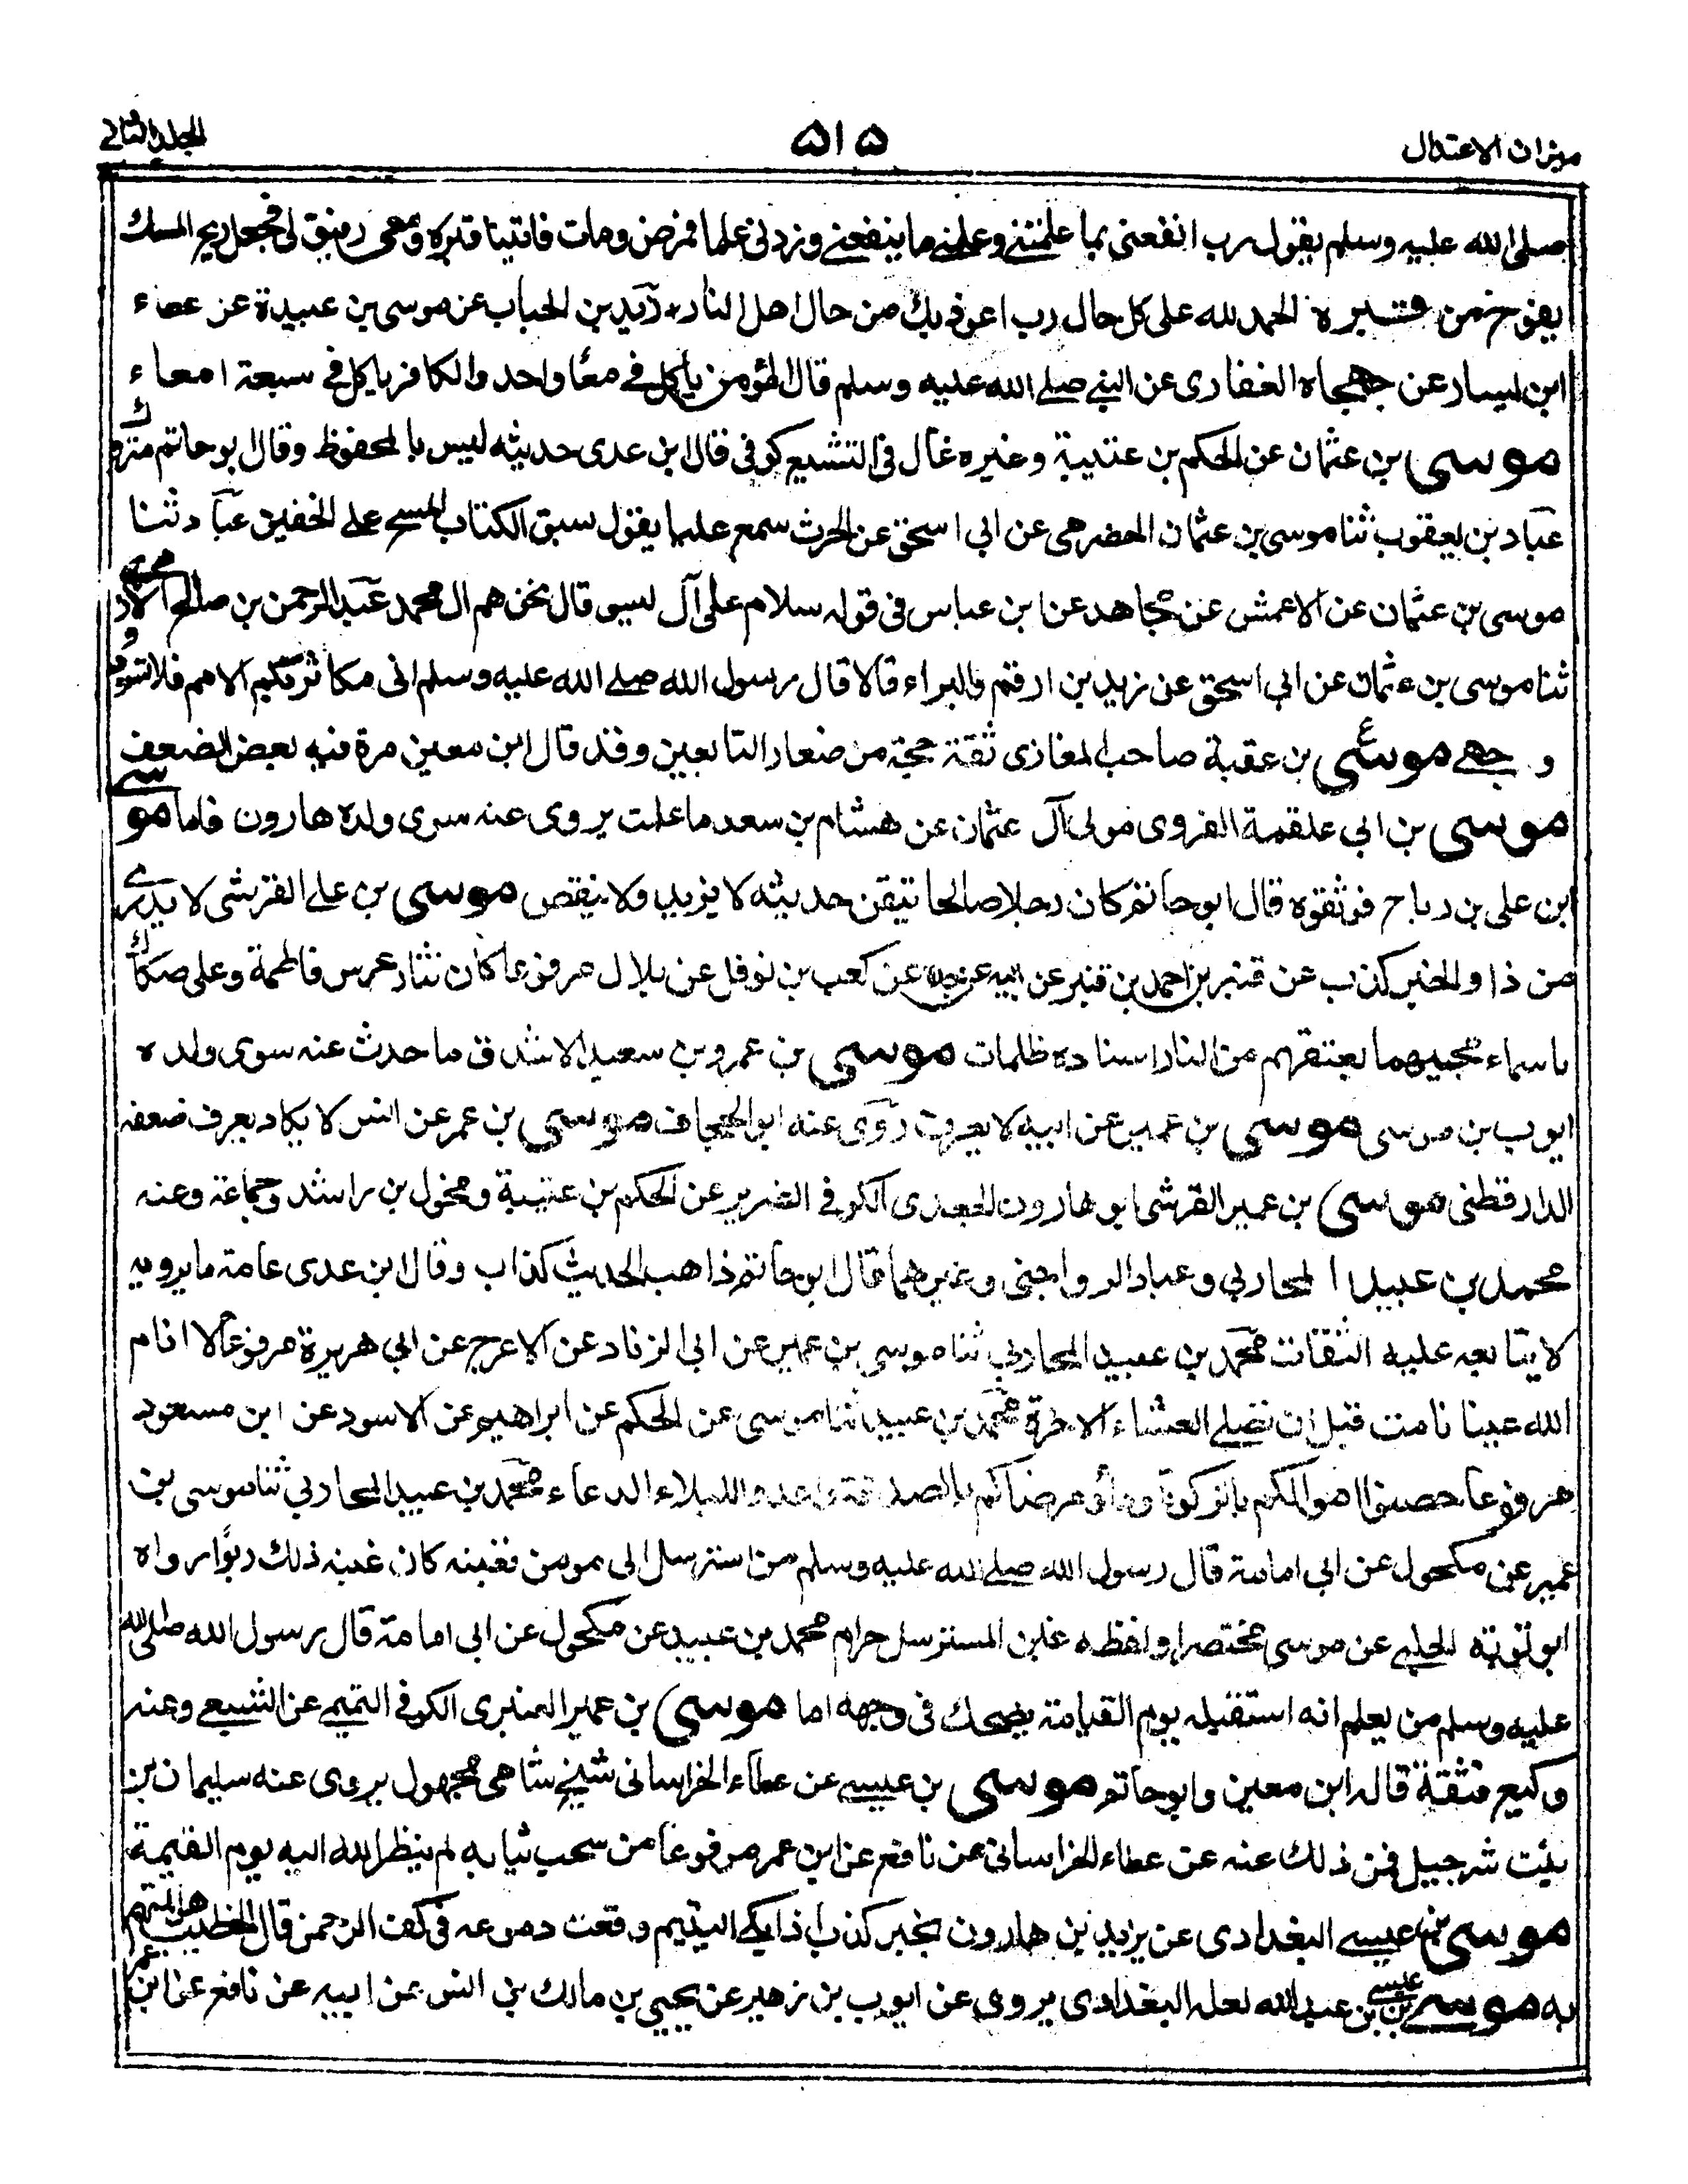 ميزان الاعتدال
٥١٥
المجلد الثاني
صلى الله عليه وسلم يقول رب انفعنى بما علمتنى وعلمنى ما ينفعنى وزدنى علما فمرض ومات فاتينا قبره ومعى رفيق لى فجعل ريح المسك
يفوح من قبره الحمد لله على كل حال رب اعوذ بك من حال اهل النار زيد بن الحباب عن موسى بن عبيدة عن عطاء
ابن يسار عن جهجاه الغفارى عن النبى صلى الله عليه وسلم قال المؤمن ياكل فى معا واحد والكافر ياكل فى سبعة امعاء
موسى بن عثمان عن الحكم بن عتيبة وغيره غال فى التشيع كوفى قال ابن عدى حديثه ليس بالمحفوظ وقال ابو حاتم متروك
عباد بن يعقوب ثنا موسى بن عثمان الحضرمى عن ابى اسحق عن الحرث سمع عليا يقول سبق الكتاب المسح على الخفين عباد ثنا
موسى بن عثمان عن الاعمش عن مجاهد عن ابن عباس فى قوله سلام على آل يسين قال نحن هم ال محمد عبد الرحمن بن صالح الازدى
ثنا موسى بن عثمان عن ابى اسحق عن زيد بن ارقم والبراء قالا قال رسول الله صلى الله عليه وسلم انى مكاثر بكم الامم فلا تسودوا
وجهى موسى ع بن عقبة صاحب المغازى ثقة حجة من صغار التابعين وقد قال ابن معين مرة فيه بعض الضعف
موسى بن ابى علقمة الفروى مولى آل عثمان عن هشام بن سعد ما علمت يروى عنه سوى ولده هارون فاما موسى
ابن على بن رباح فوثقوه قال ابو حاتم كان رجلا صالحا يتقن حديثه لا يزيد ولا ينقص موسى بن على القرشى لا يدرى
من ذا والخبر كذب عن قنبر بن احمد بن قنبر عن ابيه عن جده عن كعب بن نوفل عن بلال مرفوعا كان نثار عرس فاطمة وعلى صكاك
باسماء محبيهما بعتقهم من النار اسناده ظلمات موسى بن عمرو بن سعيد الاشدق ما حدث عنه سوى ولده
ايوب بن موسى موسى بن عمير عن ابيه لا يعرف روى عنه ابو الجحاف موسى بن عمر عن انس لا يكاد يعرف ضعفه
الدارقطنى موسى بن عمير القرشى ابو هارون الجعدى الكوفى الضرير عن الحكم بن عتيبة ومخول بن راشد وجماعة وعنه
محمد بن عبيد المحاربى وعباد الرواجنى وغيرهما قال ابو حاتم ذاهب الحديث كذاب وقال ابن عدى عامة ما يرويه
لا يتابعه عليه الثقات محمد بن عبيد المحاربى ثنا موسى بن عمير عن ابى الزناد عن الاعرج عن ابى هريرة مرفوعا لا انام
الله عينا نامت قبل ان تصلى العشاء الاخرة محمد بن عبيد ثنا موسى عن الحكم عن ابراهيم عن الاسود عن ابن مسعود
مرفوعا حصنوا اموالكم بالزكوة وداووا مرضاكم بالصدقة واعدوا للبلاء الدعاء محمد بن عبيد المحاربى ثنا موسى بن
عمير عن مكحول عن ابى امامة قال رسول الله صلى الله عليه وسلم من استرسل الى مومن فغبنه كان غبنه ذلك ربوا رواه
ابو توبة الحلبى عن موسى مختصرا ولفظه غبن المسترسل حرام محمد بن عبيد عن مكحول عن ابى امامة قال رسول الله صلى الله
عليه وسلم من يعلم انه استقبله يوم القيامة يضحك فى وجهه اما موسى بن عمير العنبرى الكوفى التميمى عن الشعبى وعنه
وكيع فثقة قاله ابن معين وابو حاتم موسى بن عيسى عن عطاء الخراسانى شيخ شامى مجهول يروى عنه سليمان بن
بنت شرحبيل فمن ذلك عنه عن عطاء الخراسانى عن نافع عن ابن عمر مرفوعا من سحب ثيابه لم ينظر الله اليه يوم القيمة
موسى بن عيسى البغدادى عن يزيد بن هارون بخبر كذب اذا بكى اليتيم وقعت دموعه فى كف الرحمن قال الخطيب هو المتهم
به موسى بن عيسى بن عبد الله لعله البغدادى يروى عن ايوب بن زهير عن يحيى بن مالك بن انس عن ابيه عن نافع عن ابن عمر